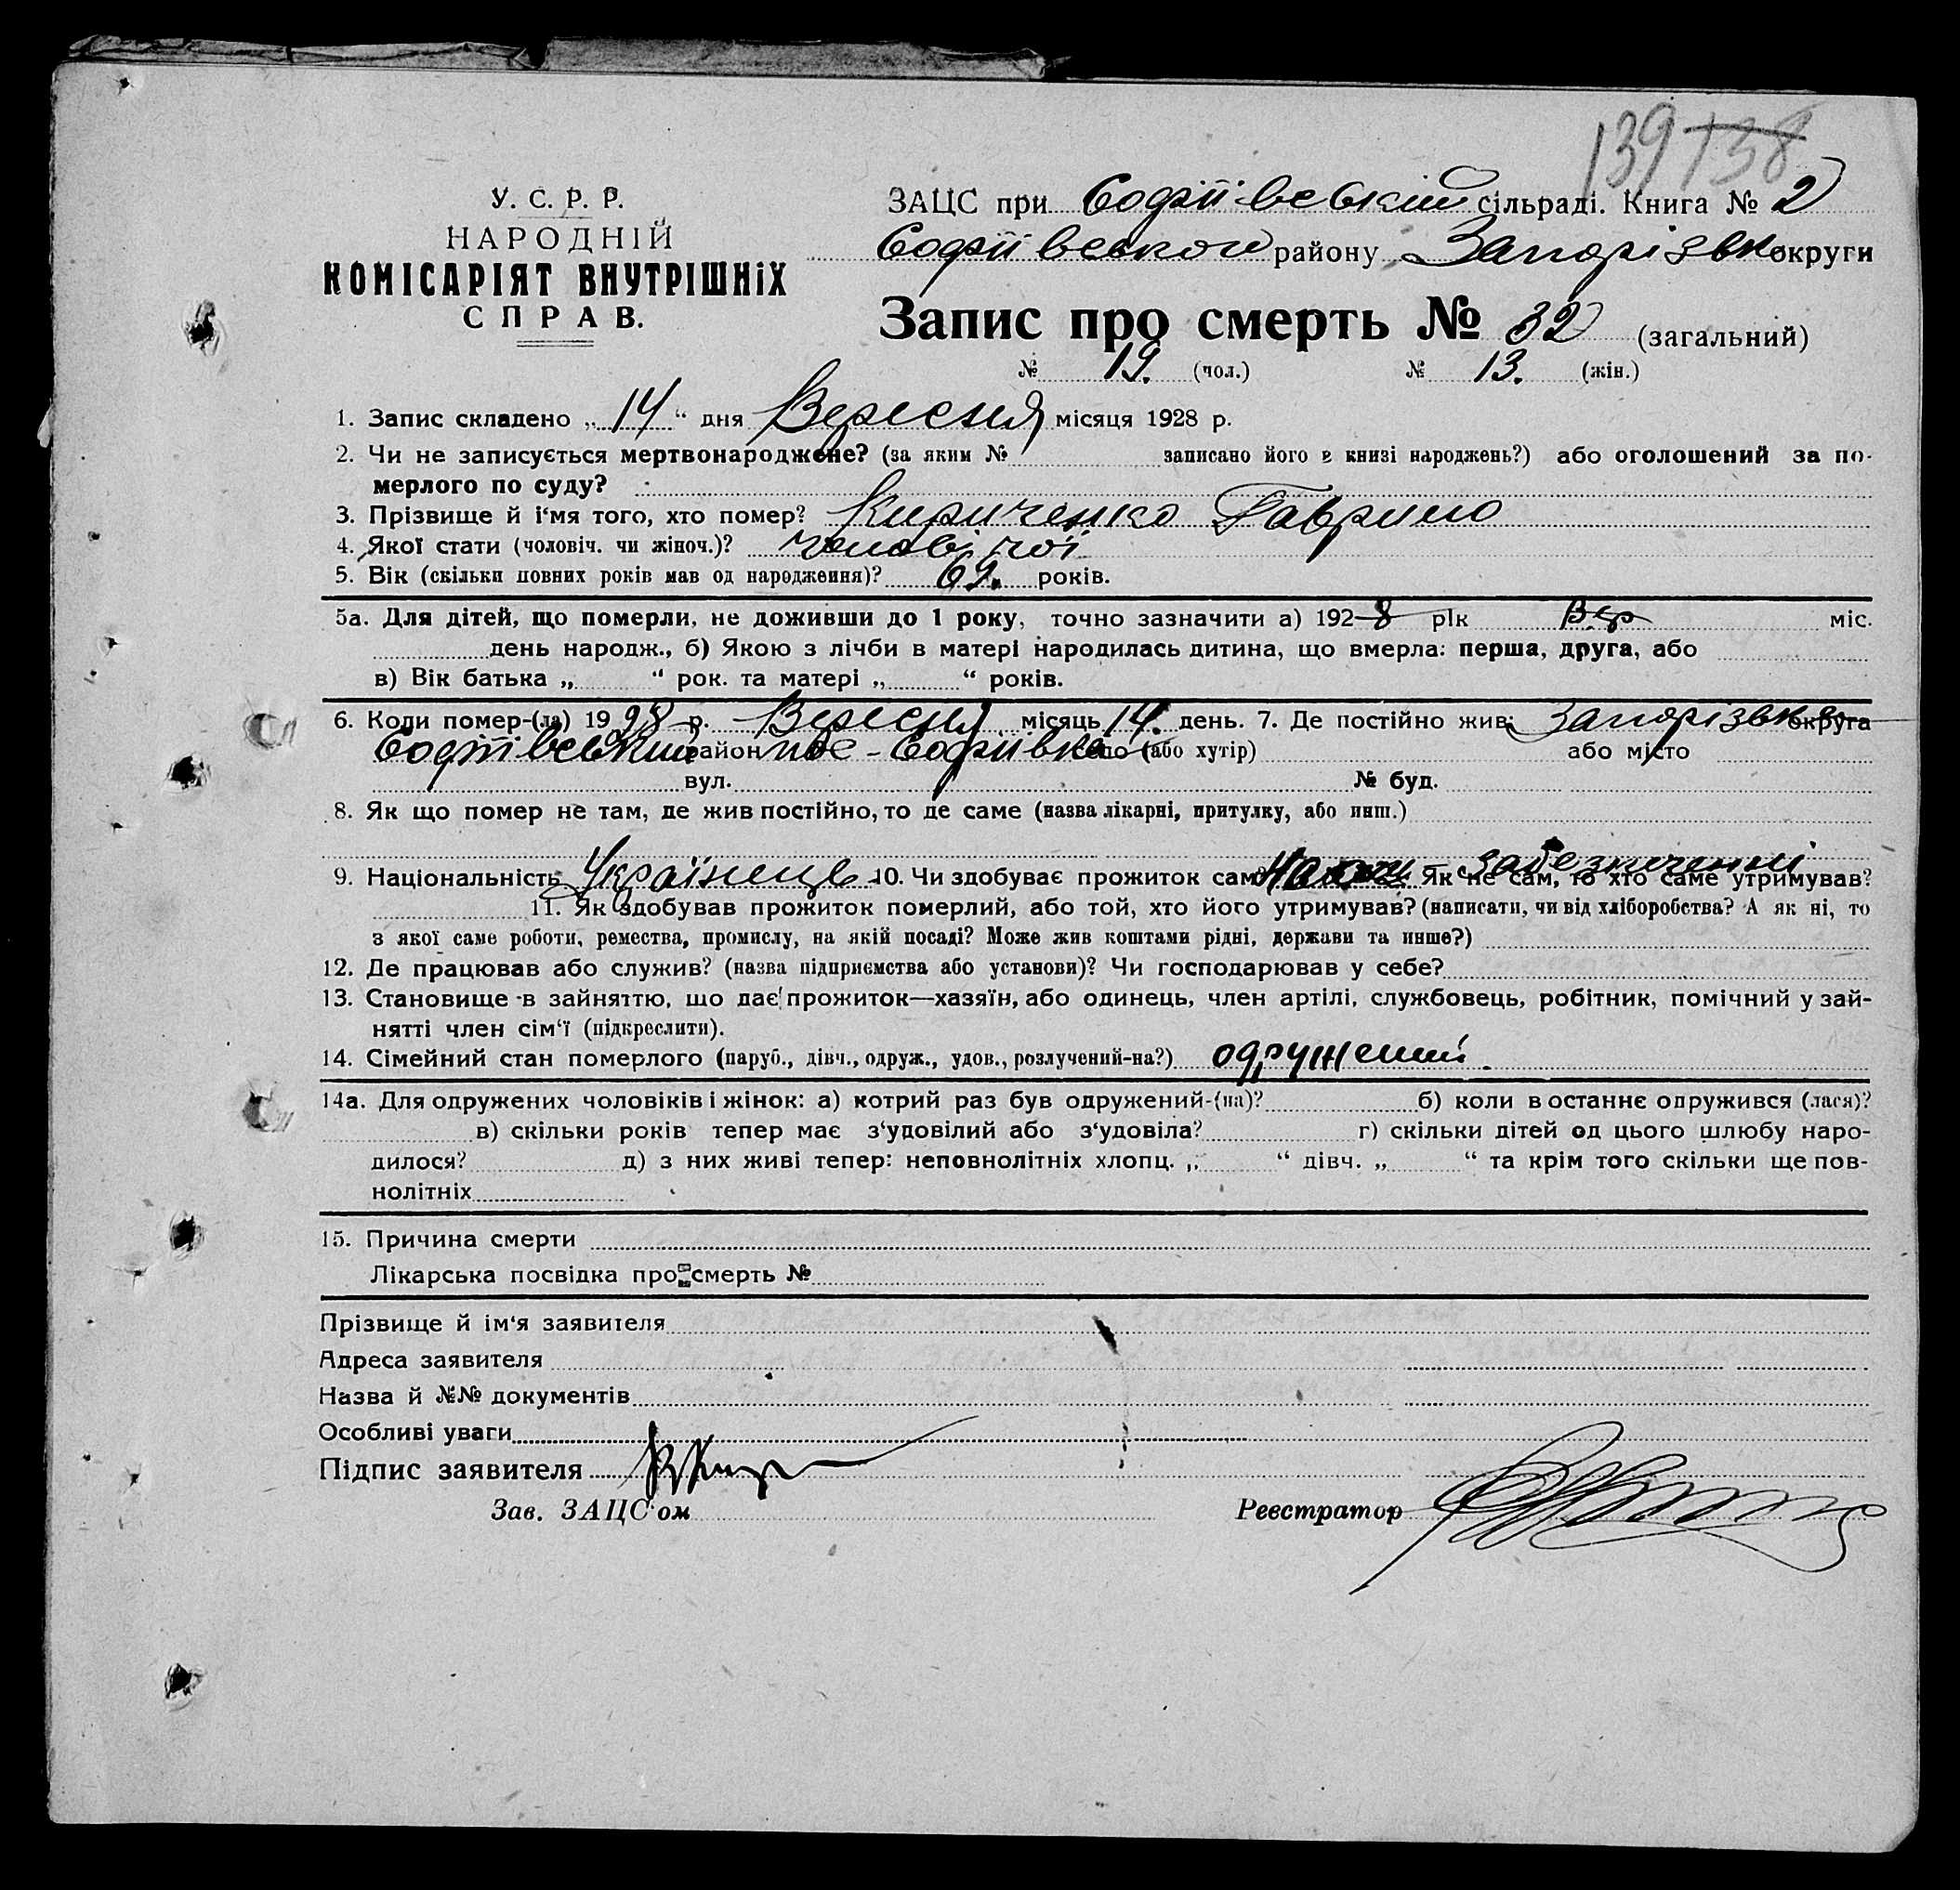 139 138
У. С. Р. Р.
НАРОДНІЙ
КОМІСАРІЯТ ВНУТРІШНІХ
СПРАВ.
ЗАЦС при Софіївській сільраді. Книга № 2
Софіївського району Запорізьк округи
Запис про смерть № 32 (загальний)
№ 19. (чол.) № 13. (жін.)
1. Запис складено „14“ дня Вересня місяця 1928 р.
2. Чи не записується мертвонароджене? (за яким № записано його в книзі народжень?) або оголошений за по-
мерлого по суду?
3. Прізвище й і‘мя того, хто помер? Кириченко Гаврило
4. Якої стати (чоловіч. чи жіноч.)? чоловічої
5. Вік (скільки повних років мав од народження)? 69. років.
5а. Для дітей, що померли, не доживши до 1 року, точно зазначити а) 192-8 рік Вер міс.
день народж., б) Якою з лічби в матері народилась дитина, що вмерла: перша, друга, або
в) Вік батька „ “ рок. та матері „ “ років.
6. Коли помер-(ла) 1928 р. Вересня місяць 14. день. 7. Де постійно жив: Запорізька округа
Софіївський район Софіївка село (або хутір) або місто
вул. № буд.
8. Як що помер не там, де жив постійно, то де саме (назва лікарні, притулку, або инш.)
9. Національність Українець 10. Чи здобуває прожиток сам? Як не сам, то хто саме утримував?
11. Як здобував прожиток померлий, або той, хто його утримував? (написати, чи від хліборобства? А як ні, то
з якої саме роботи, ремества, промислу, на якій посаді? Може жив коштами рідні, держави та инше?)
12. Де працював або служив? (назва підприємства або установи)? Чи господарював у себе?
13. Становище в зайняттю, що дає прожиток—хазяїн, або одинець, член артілі, службовець, робітник, помічний у зай-
нятті член сім‘ї (підкреслити).
14. Сімейний стан померлого (паруб., дівч., одруж., удов., розлучений-на?) одружений.
14а. Для одружених чоловіків і жінок: а) котрий раз був одружений-(на)? б) коли в останнє одружився (лася)?
в) скільки років тепер має з‘удовілий або з‘удовіла? г) скільки дітей од цього шлюбу наро-
дилося? д) з них живі тепер: неповнолітніх хлопц. „ “ дівч. „ “ та крім того скільки ще пов-
нолітніх
15. Причина смерти
Лікарська посвідка про смерть №
Прізвище й ім‘я заявителя
Адреса заявителя
Назва й №№ документів
Особливі уваги
Підпис заявителя
Зав. ЗАЦС‘ом Реєстратор